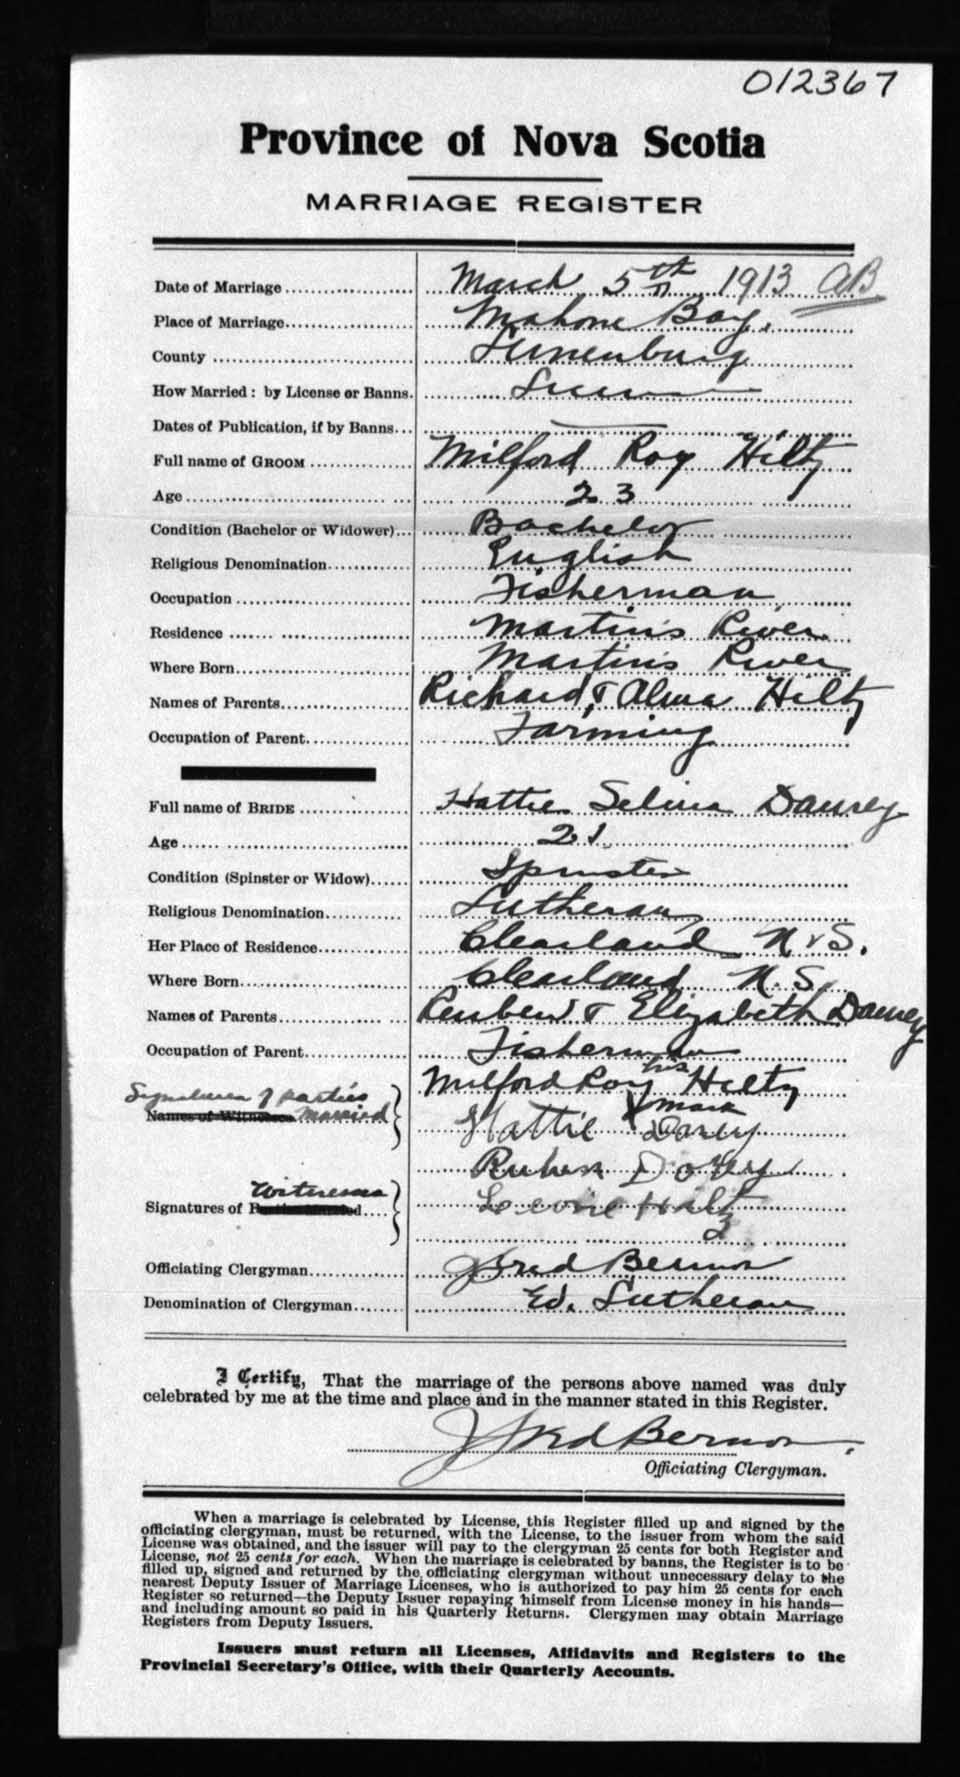 012367
Province of Nova Scotia
MARRIAGE REGISTER
Date of Marriage March 5th 1913 AB
Place of Marriage Mahone Bay.
County Lunenburg
How Married: by License or Banns. License
Dates of Publication, if by Banns
Full name of GROOM Milford Roy Hiltz
Age 23
Condition (Bachelor or Widower) Bachelor
Religious Denomination English
Occupation Fisherman
Residence Martin's River
Where Born Martin's River
Names of Parents Richard & Alma Hiltz
Occupation of Parent Farming
Full name of BRIDE Hattie Selina Daurey
Age 21
Condition (Spinster or Widow) Spinster
Religious Denomination Lutheran
Her Place of Residence Clearland N.S.
Where Born Clearland N.S.
Names of Parents Reuben & Elizabeth Daurey
Occupation of Parent Fisherman
Signatures of parties Milford Roy his Hiltz
Names of Witnesses Married X mark
Hattie Dorey
Ruben Dorey
Witnesses
Signatures of Hiltz
Officiating Clergyman J Fred Bermon
Denomination of Clergyman Ev. Lutheran
I Certify, That the marriage of the persons above named was duly
celebrated by me at the time and place and in the manner stated in this Register.
J Fred Bermon.
Officiating Clergyman.
When a marriage is celebrated by License, this Register filled up and signed by the
officiating clergyman, must be returned, with the License, to the issuer from whom the said
License was obtained, and the issuer will pay to the clergyman 25 cents for both Register and
License, not 25 cents for each. When the marriage is celebrated by banns, the Register is to be
filled up, signed and returned by the officiating clergyman without unnecessary delay to the
nearest Deputy Issuer of Marriage Licenses, who is authorized to pay him 25 cents for each
Register so returned—the Deputy Issuer repaying himself from License money in his hands—
and including amount so paid in his Quarterly Returns. Clergymen may obtain Marriage
Registers from Deputy Issuers.
Issuers must return all Licenses, Affidavits and Registers to the
Provincial Secretary's Office, with their Quarterly Accounts.